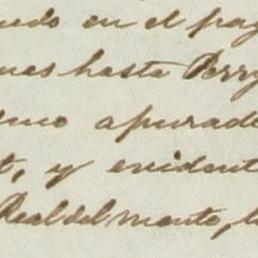 uedo en el pro
ues hasta Perry
uno apurado
t, y evident
Real del monte, la